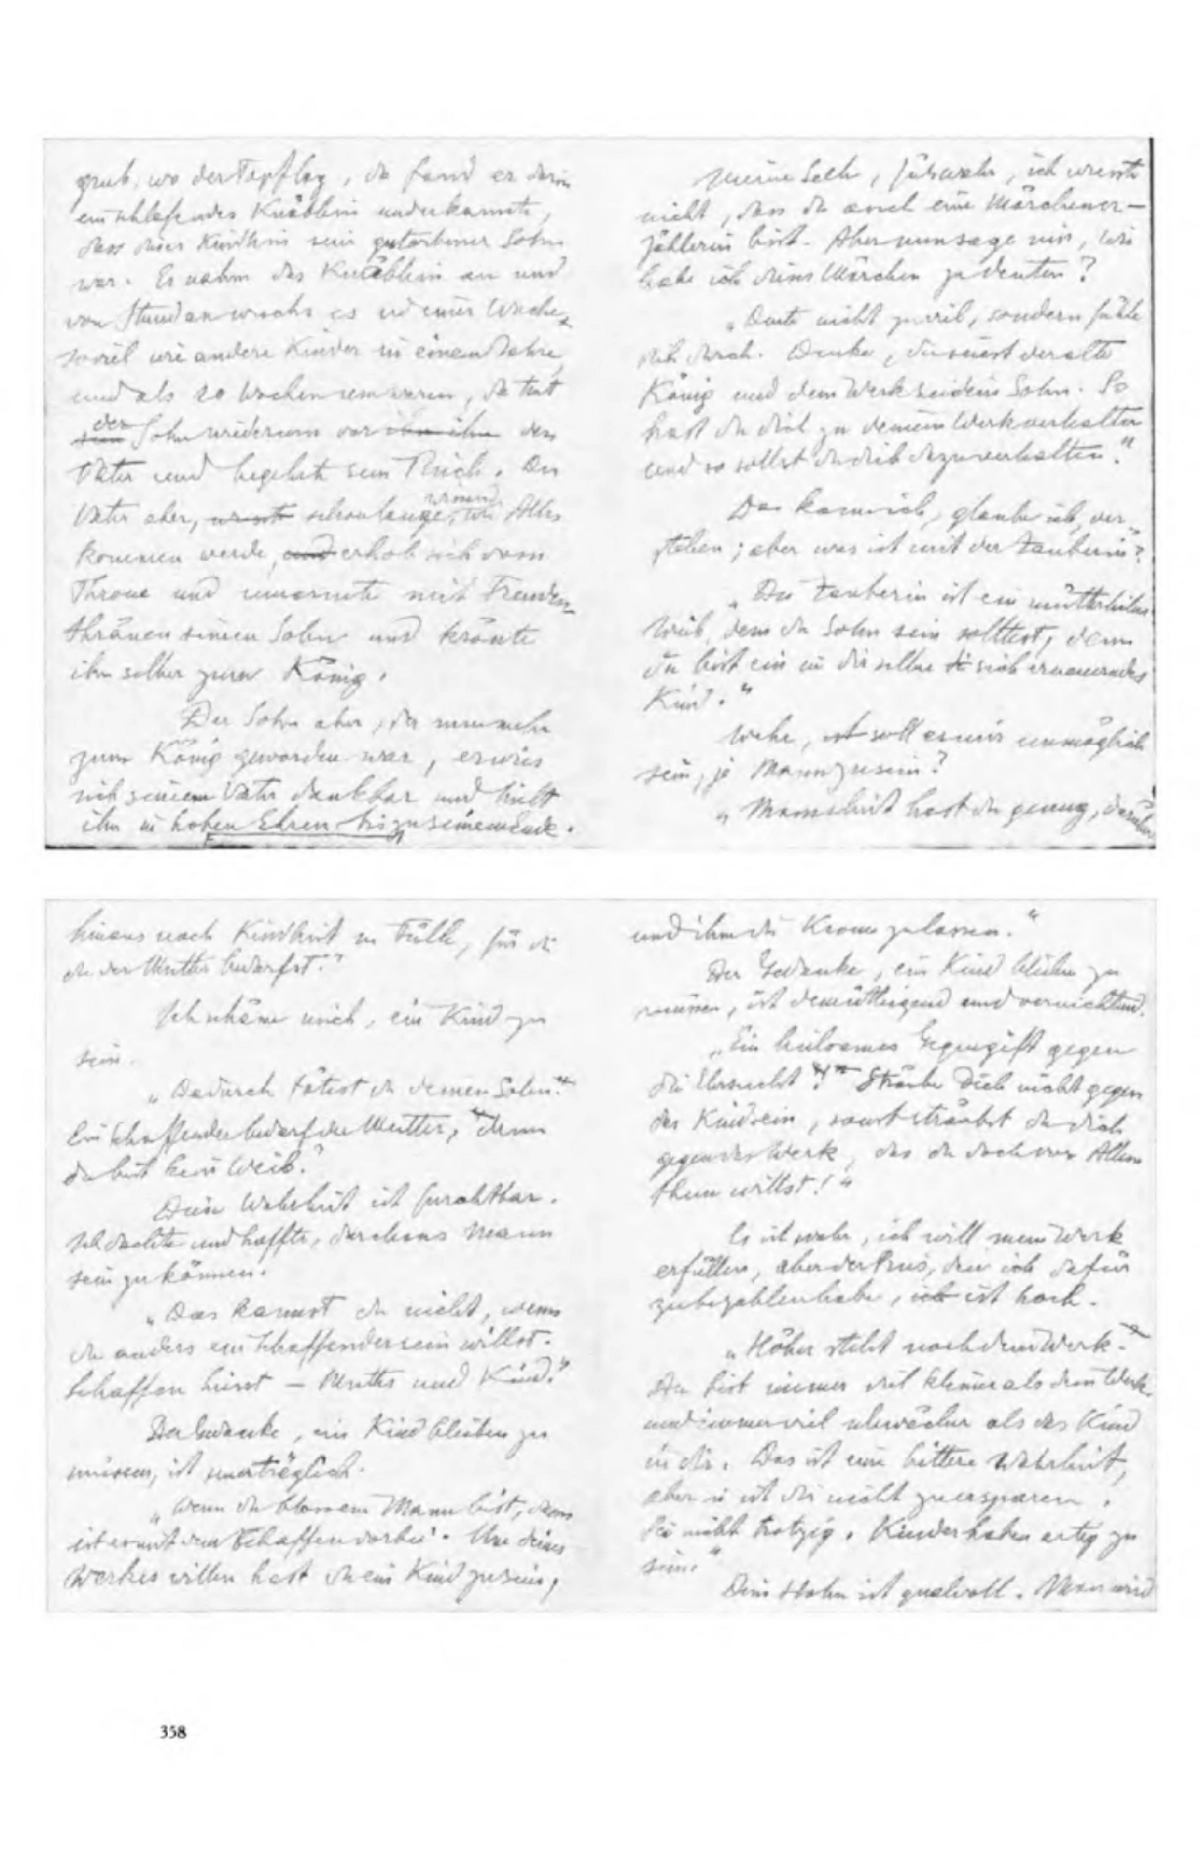 grub, wo der Topf lag, da fand er darin
ein schlafendes Knäblein und erkannte,
dass dies Kindlein sein gestorbener Sohn
war. Er nahm das Knäblein an und
von Stund an wuchs es in einer Woche
soviel wie andere Kinder in einem Jahre
und als 20 Wochen um waren, da trat
sein der Sohn wiederum vor den
Vater und begehrte sein Reich. Der
Vater aber, wusste schon lange, wie Alles
kommen werde, und erhob sich vom
Throne und umarmte mit Freuden-
thränen seinen Sohn und krönte
ihn selber zum König.
Der Sohn aber, der nunmehr
zum König geworden war, erwies
sich seinem Vater dankbar und hielt
ihn in hohen Ehren bis zu seinem Ende.
Meine Seele, fürwahr, ich wusste
nicht, dass du auch eine Märchener-
zählerin bist. Aber nun sage mir, wie
habe ich deins Märchen zu deuten?
„Deute nicht zuviel, sondern fühle
dich durch. Denke, du seiest der alte
König und dem Werk sei dein Sohn. So
hast du dich zu deinem Werk verhalten
und so sollst du dich dazu verhalten."
Das kann ich, glaube ich, ver-
stehen; aber was ist mit der Zauberin?
„Die Zauberin ist ein mütterliches
Weib, dem du Sohn sein solltest, denn
du bist ein in dir selber sich erneuerndes
Kind."
Wehe, ist soll es mir unmöglich
sein, je Mann zu sein?
„Mannsheit hast du genug, darüber
hinaus noch Kindheit in Fülle, für die
du der Mutter bedarfst."
Ich schäme mich, ein Kind zu
sein.
„Dadurch tötest du deinen Sohn."
Ein Schaffender bedarf der Mutter, denn
du bist kein Weib."
Diese Wahrheit ist furchtbar.
Ich dachte und hoffte, durchaus Mann
sein zu können.
„Das kannst du nicht, wenn
du anders ein Schaffender sein willst.
Schaffen heisst — Mutter und Kind."
Der Gedanke, ein Kind bleiben zu
müssen, ist unerträglich.
„Wenn du bloss ein Mann bist, dann
ist es mit dem Schaffen vorbei. Um deines
Werkes willen hast du ein Kind zu sein,
und ihm die Krone zu lassen."
Der Gedanke, ein Kind bleiben zu
müssen, ist demüthigend und vernichtend.
„Ein heilsames Gegengift gegen
die Ehrsucht! Sträube dich nicht gegen
das Kindsein, sonst sträubst du dich
gegen das Werk, das du doch vor Allem
thun willst!"
Es ist wahr, ich will mein Werk
erfüllen, aber der Preis, den ich dafür
zu bezahlen habe, ist hoch.
„Höher steht noch dein Werk."
Du bist immer viel kleiner als dein Werk
und immer viel schwächer als das Kind
in dir. Das ist eine bittere Wahrheit,
aber sie ist dir nicht zu ersparen.
Sei nicht trotzig. Kinder haben artig zu
sein."
Dein Hohn ist qualvoll. Man wird
358